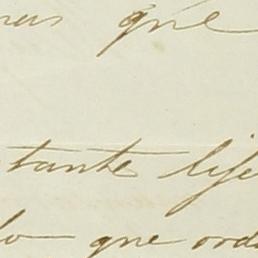 que
tante lije
lo que orde